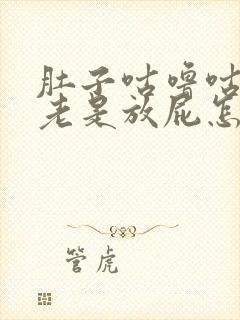 肚子咕噜咕
老是放屁怎
管虎